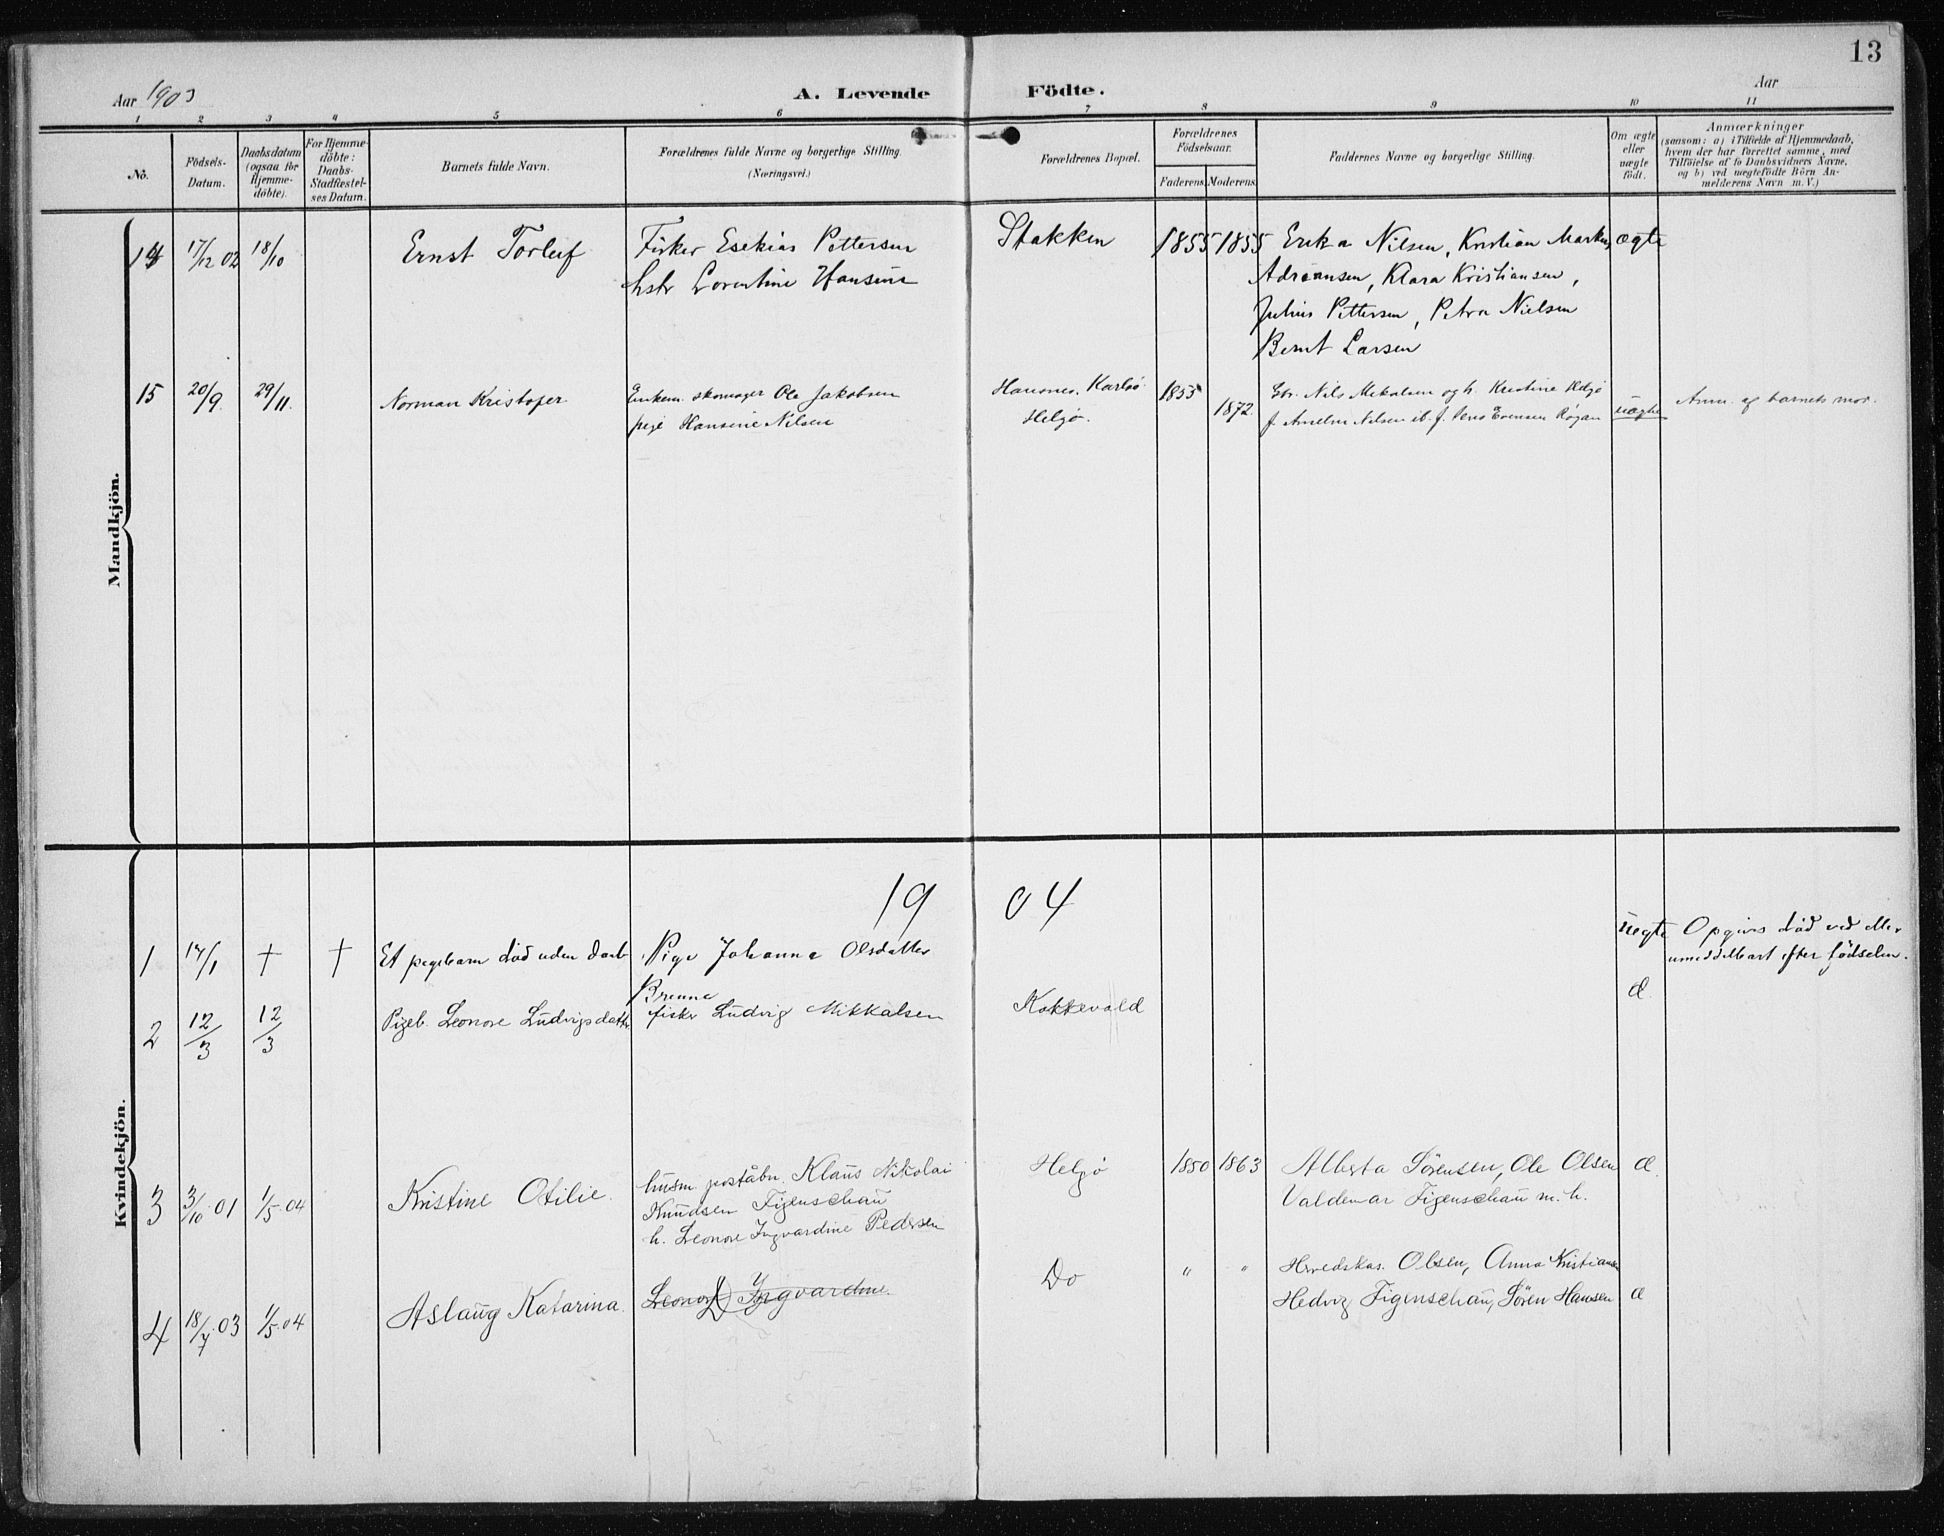 13
Aar 1903
A. Levende
Födte.
Aar
1 2 3 4 5 6 7 8 9 10 11
Nô.
Födsels-
Datum.
Daabsdatum
(ogsaa för
Hjemme-
döbte).
For Hjemme-
döbte:
Daabs-
Stadfæstel-
ses Datum.
Barnets fulde Navn.
Forældrenes fulde Navne og borgerlige Stilling.
(Næringsvei.)
Forældrenes Bopæl.
Forældrenes
Födselsaar.
Faderens. Moderens.
Faddernes Navne og borgerlige Stilling.
Om ægte
eller
uægte
født.
Anmærkninger
(saasom: a) i Tilfælde af Hjemmedaab,
hvem der har forrettet samme, med
Tilföielse af to Daabsvidners Navne,
og b) ved uægtefödte Börn An-
melderens Navn m.V.)
Mandkjön.
14
17/12 02
18/10
Ernst Torleif
Fisker Esekias Pettersen
hstr Lorentine Hansine
Stakken
1855
1855
Erika Nilsen, Kristian Markus
Adriansen, Klara Kristiansen,
Julius Pettersen, Petra Nielsen
Bernt Larsen
ægte
15
20/9.
29/11.
Norman Kristofer
Enkem. skomager Ole Jakobsen
pige Hansine Nilsen
Hansnes. Karlsö
Helgø.
1855
1872.
Gbr. Nils Mekalsen og h. Kristine Helgö
f. Anselm Nilsen ib. f. Jens Evensen
uægte
Anm. af barnets mor.
Kvindekjön.
19 04
1
14/1
†
†
Et pigebarn död uden Daab
Pige Johanna Olsdatter
Brenne
uegte
Opgives död ved
umiddelbart efter födselen.
2
12/3
12/3
Pigeb. Leonore Ludvigsdatter
fisker Ludvig Mikkalsen
Kokkevold
æ.
3
3/10 01
1/5 04
Kristine Otilie.
husm. poståbn. Klaus Nikolai
Knudsen Figenschau
h. Leonore Ingvardine Pedersen
Helgö
1850
1863
Alberta Sörensen, Ole Olsen
Valdemar Figenschau m. h.
æ.
4
18/7 03
1/5 04
Aslaug Katarina.
Leonore Ingvardine.
Do
"
"
Olsen, Anna Kristiansen
Hedvig Figenschau, Sören Hansen
æ